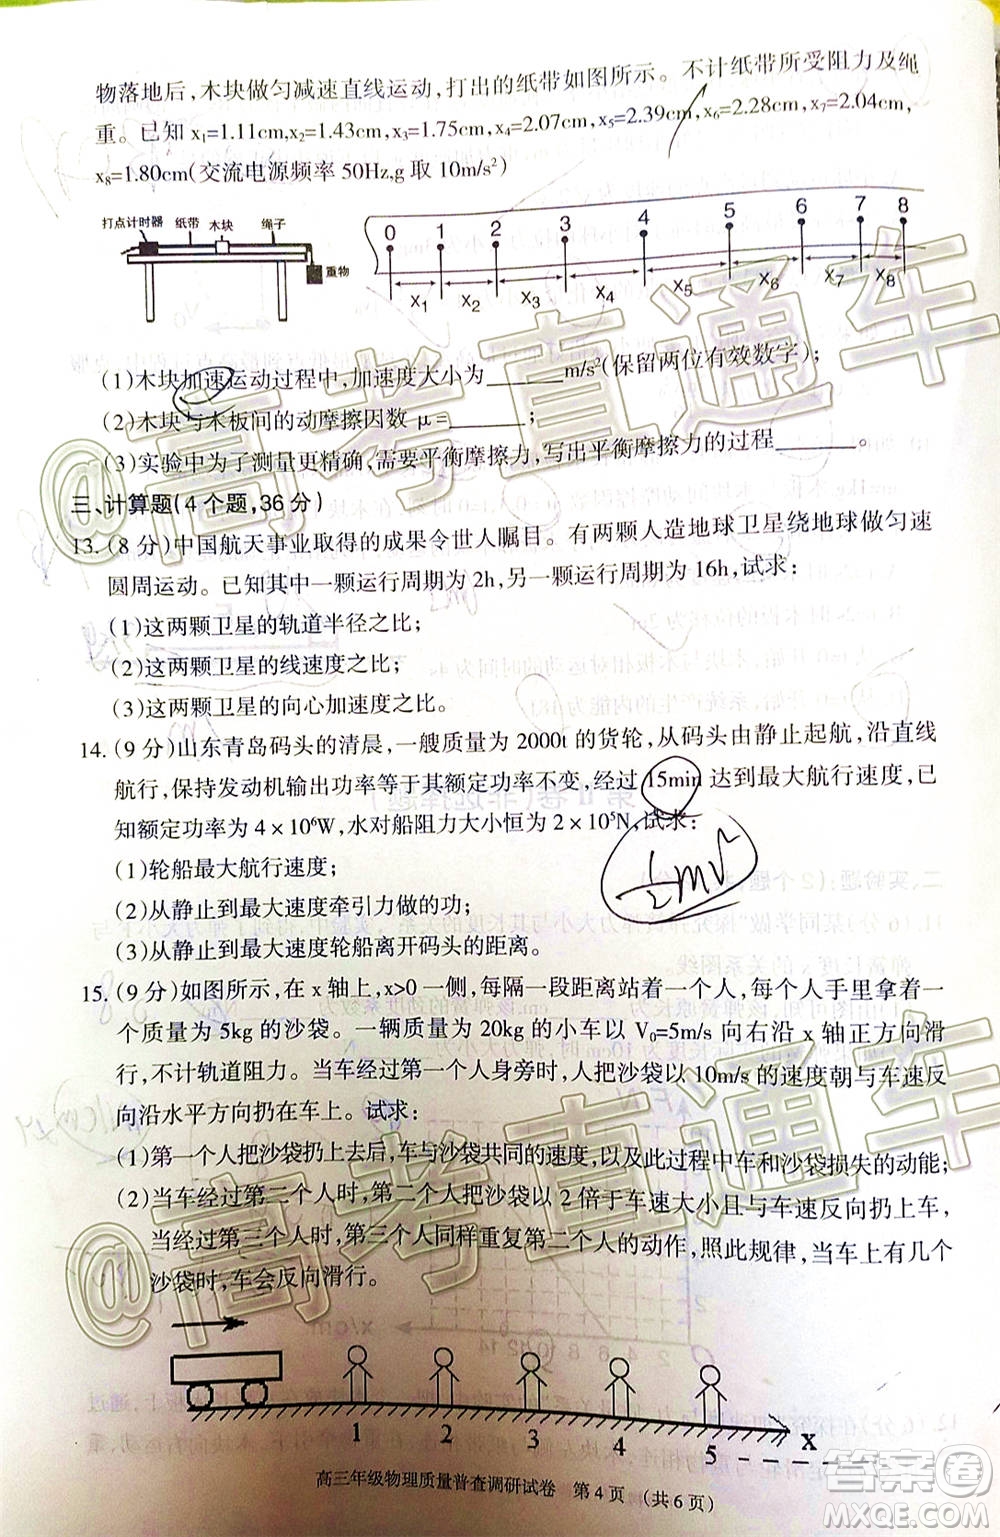 物落地后,木块做匀减速直线运动,打出的纸带如图所示。不计纸带所受阻力及绳
重。已知 x₁=1.11cm,x₂=1.43cm,x₃=1.75cm,x₄=2.07cm,x₅=2.39cm,x₆=2.28cm,x₇=2.04cm,
x₈=1.80cm(交流电源频率 50Hz,g 取 10m/s²)
打点计时器 纸带 木块 绳子
重物
0 1 2 3 4 5 6 7 8
x₁ x₂ x₃ x₄ x₅ x₆ x₇ x₈
(1)木块加速运动过程中,加速度大小为______m/s²(保留两位有效数字);
(2)木块与木板间的动摩擦因数 μ=______;
(3)实验中为了测量更精确,需要平衡摩擦力,写出平衡摩擦力的过程______。
三、计算题(4 个题,36 分)
13. (8 分)中国航天事业取得的成果令世人瞩目。有两颗人造地球卫星绕地球做匀速
圆周运动。已知其中一颗运行周期为 2h,另一颗运行周期为 16h,试求:
(1)这两颗卫星的轨道半径之比;
(2)这两颗卫星的线速度之比;
(3)这两颗卫星的向心加速度之比。
14. (9 分)山东青岛码头的清晨,一艘质量为 2000t 的货轮,从码头由静止起航,沿直线
航行,保持发动机输出功率等于其额定功率不变,经过 15min 达到最大航行速度,已
知额定功率为 4×10⁶W,水对船阻力大小恒为 2×10⁵N,试求:
½mv²
(1)轮船最大航行速度;
(2)从静止到最大速度牵引力做的功;
(3)从静止到最大速度轮船离开码头的距离。
15. (9 分)如图所示,在 x 轴上,x>0 一侧,每隔一段距离站着一个人,每个人手里拿着一
个质量为 5kg 的沙袋。一辆质量为 20kg 的小车以 V₀=5m/s 向右沿 x 轴正方向滑
行,不计轨道阻力。当车经过第一个人身旁时,人把沙袋以 10m/s 的速度朝与车速反
向沿水平方向扔在车上。试求:
(1)第一个人把沙袋扔上去后,车与沙袋共同的速度,以及此过程中车和沙袋损失的动能;
(2)当车经过第二个人时,第二个人把沙袋以 2 倍于车速大小且与车速反向扔上车,
当经过第三个人时,第三个人同样重复第二个人的动作,照此规律,当车上有几个
沙袋时,车会反向滑行。
1 2 3 4 5 x
高三年级物理质量普查调研试卷 第 4 页 (共 6 页)
@高考直通车
@高考直通车
答案卷
MXQE.COM